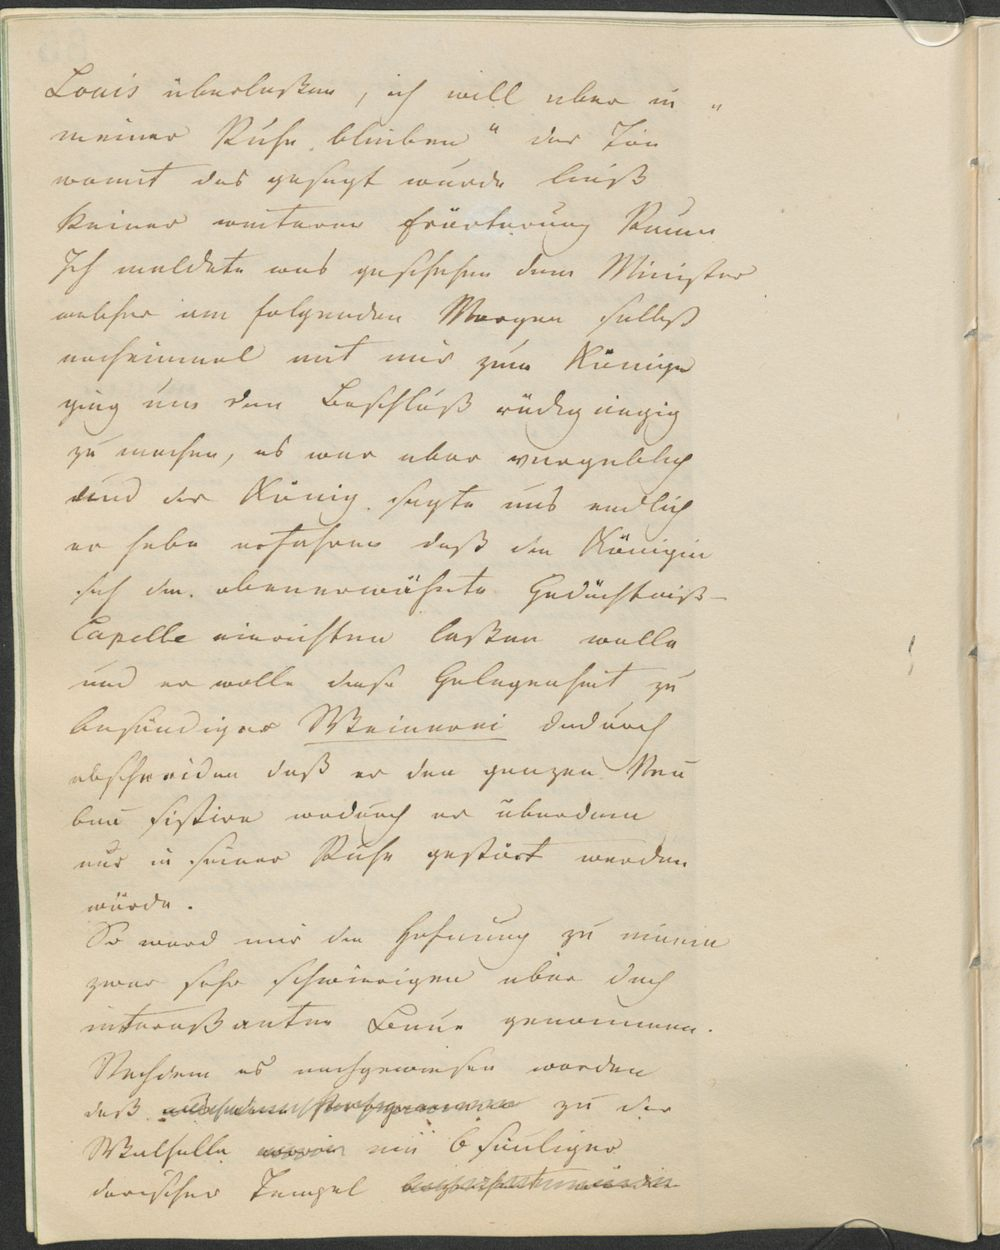 Louis überlaßen, ich will aber in „
meiner Ruhe bleiben“ der Ton
womit das gesagt wurde ließ
keiner weiteren Erörterung Raum
Ich meldete was geschehen dem Minister
welcher am folgenden Morgen selbst
nocheinmal mit mir zum Könige
ging um den Beschluß rückgängig
zu machen, es war aber vergeblich
und der König sagte uns endlich
er habe erfahren daß die Königin
sich die obenerwähnte Gedächtniß-
Capelle einrichten laßen wolle
und er wolle diese Gelegenheit zu
beständiger Weinerei dadurch
abschneiden daß er den ganzen Neu
bau sistire wodurch er überdem
nur in seiner Ruhe gestört werden
würde.
So ward mir die Hofnung zu einem
zwar sehr schwierigen aber doch
intereßanten Baue genommen.
Nachdem es nachgewiesen worden
daß zu der
Walhalla ein 6 säuliger
dorischer Tempel